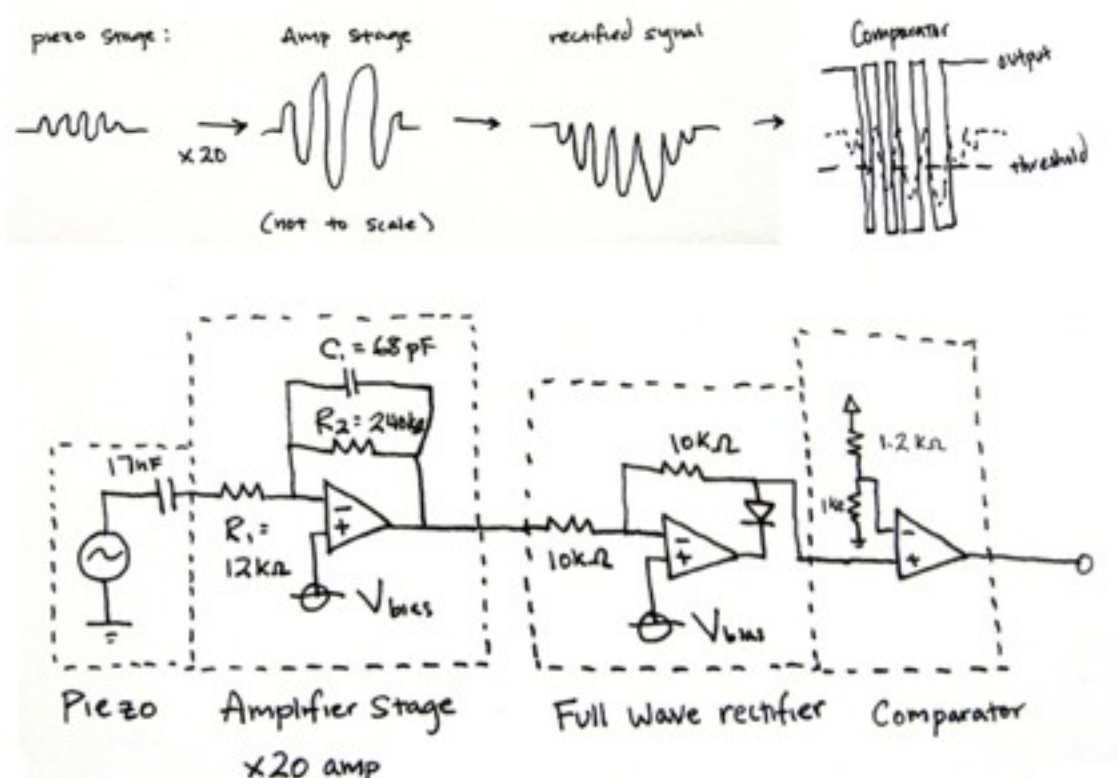 piezo stage:
Amp stage
rectified signal
Comparator
output
x20
threshold
(not to scale)
C₁ = 68 pF
R₂ = 240kΩ
17nF
R₁ =
12kΩ
Vbias
10kΩ
10kΩ
Vbias
1.2 kΩ
1kΩ
- +
- +
- +
Piezo
Amplifier Stage
x20 amp
Full Wave rectifier
Comparator